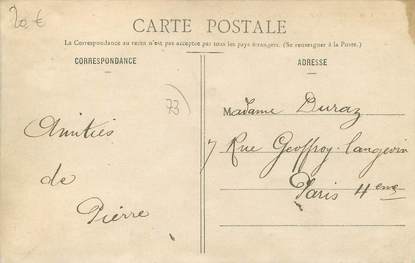 20 €
CARTE POSTALE
La Correspondance au recto n'est pas acceptée par tous les pays étrangers. (Se renseigner à la Poste.)
CORRESPONDANCE
ADRESSE
73
Amitiés
de
Pierre
Madame Duraz
7 Rue Geoffroy-Langevin
Paris 4eme